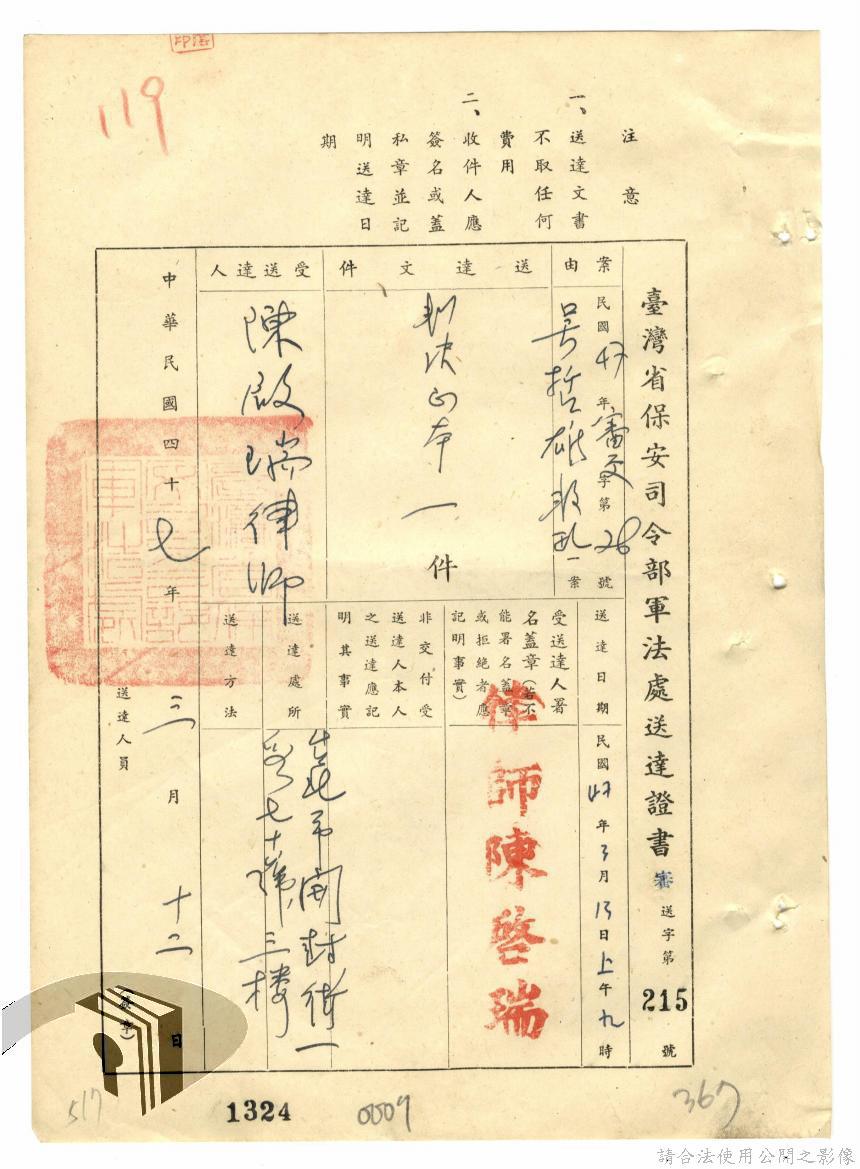 119
注意
一、送達文書
不取任何
費用
二、收件人應
簽名或蓋
私章並記
明送達日
期
臺灣省保安司令部軍法處送達證書 審送字第215號
案由
民國47年審字第28號
吳哲雄叛亂一案
送達文件
判決正本一件
受送達人
陳啟瑞律師
送達日期
民國47年3月13日上午九時
受送達人署
名蓋章(若不
能署名蓋章
或拒絕者應
記明事實)
律師陳啓瑞
非交付受
送達人本人
之送達應記
明其事實
送達處所
台北市開封街一
段七十號三楼
送達方法
中華民國四十七年三月十二日
送達人員
(簽章)
517
1324
0009
367
請合法使用公開之影像